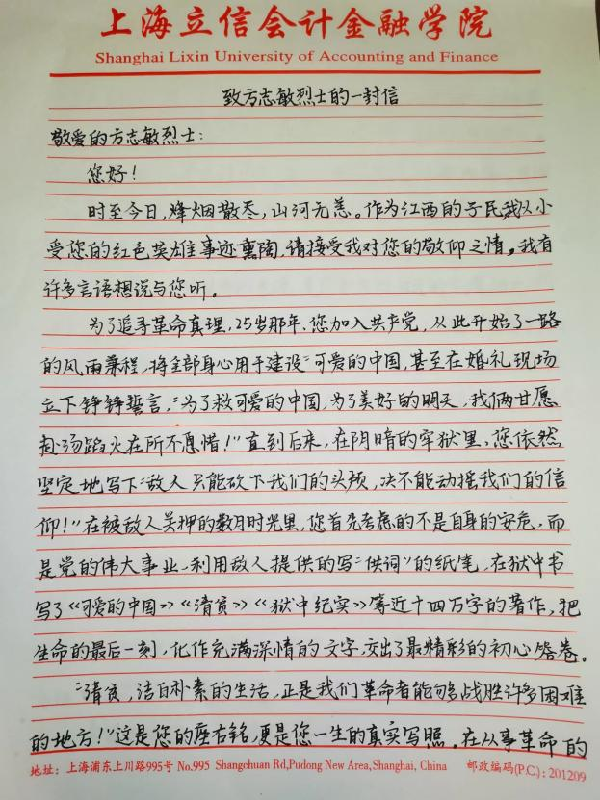 上海立信会计金融学院
Shanghai Lixin University of Accounting and Finance
致方志敏烈士的一封信
敬爱的方志敏烈士:
您好!
时至今日,烽烟散尽,山河无恙。作为江西的子民我从小
受您的红色英雄事迹熏陶,请接受我对您的敬仰之情。我有
许多言语想说与您听。
为了追寻革命真理,25岁那年,您加入共产党,从此开始了一路
的风雨兼程,将全部身心用于建设“可爱的中国,甚至在婚礼现场
立下铮铮誓言,“为了救可爱的中国,为了美好的明天,我俩甘愿
赴汤蹈火在所不惜!”直到后来,在阴暗的牢狱里,您依然
坚定地写下“敌人只能砍下我们的头颅,决不能动摇我们的信
仰!”在被敌人关押的数月时光里,您首先考虑的不是自身的安危,而
是党的伟大事业,利用敌人提供的写“供词”的纸笔,在狱中书
写了《可爱的中国》《清贫》《狱中纪实》等近十四万字的著作,把
生命的最后一刻,化作充满深情的文字,交出了最精彩的初心答卷。
“清贫,洁白朴素的生活,正是我们革命者能够战胜许多困难
的地方!”这是您的座右铭,更是您一生的真实写照。在从事革命的
地址:上海浦东上川路995号 No.995 Shangchuan Rd,Pudong New Area,Shanghai, China 邮政编码(P.C.):201209